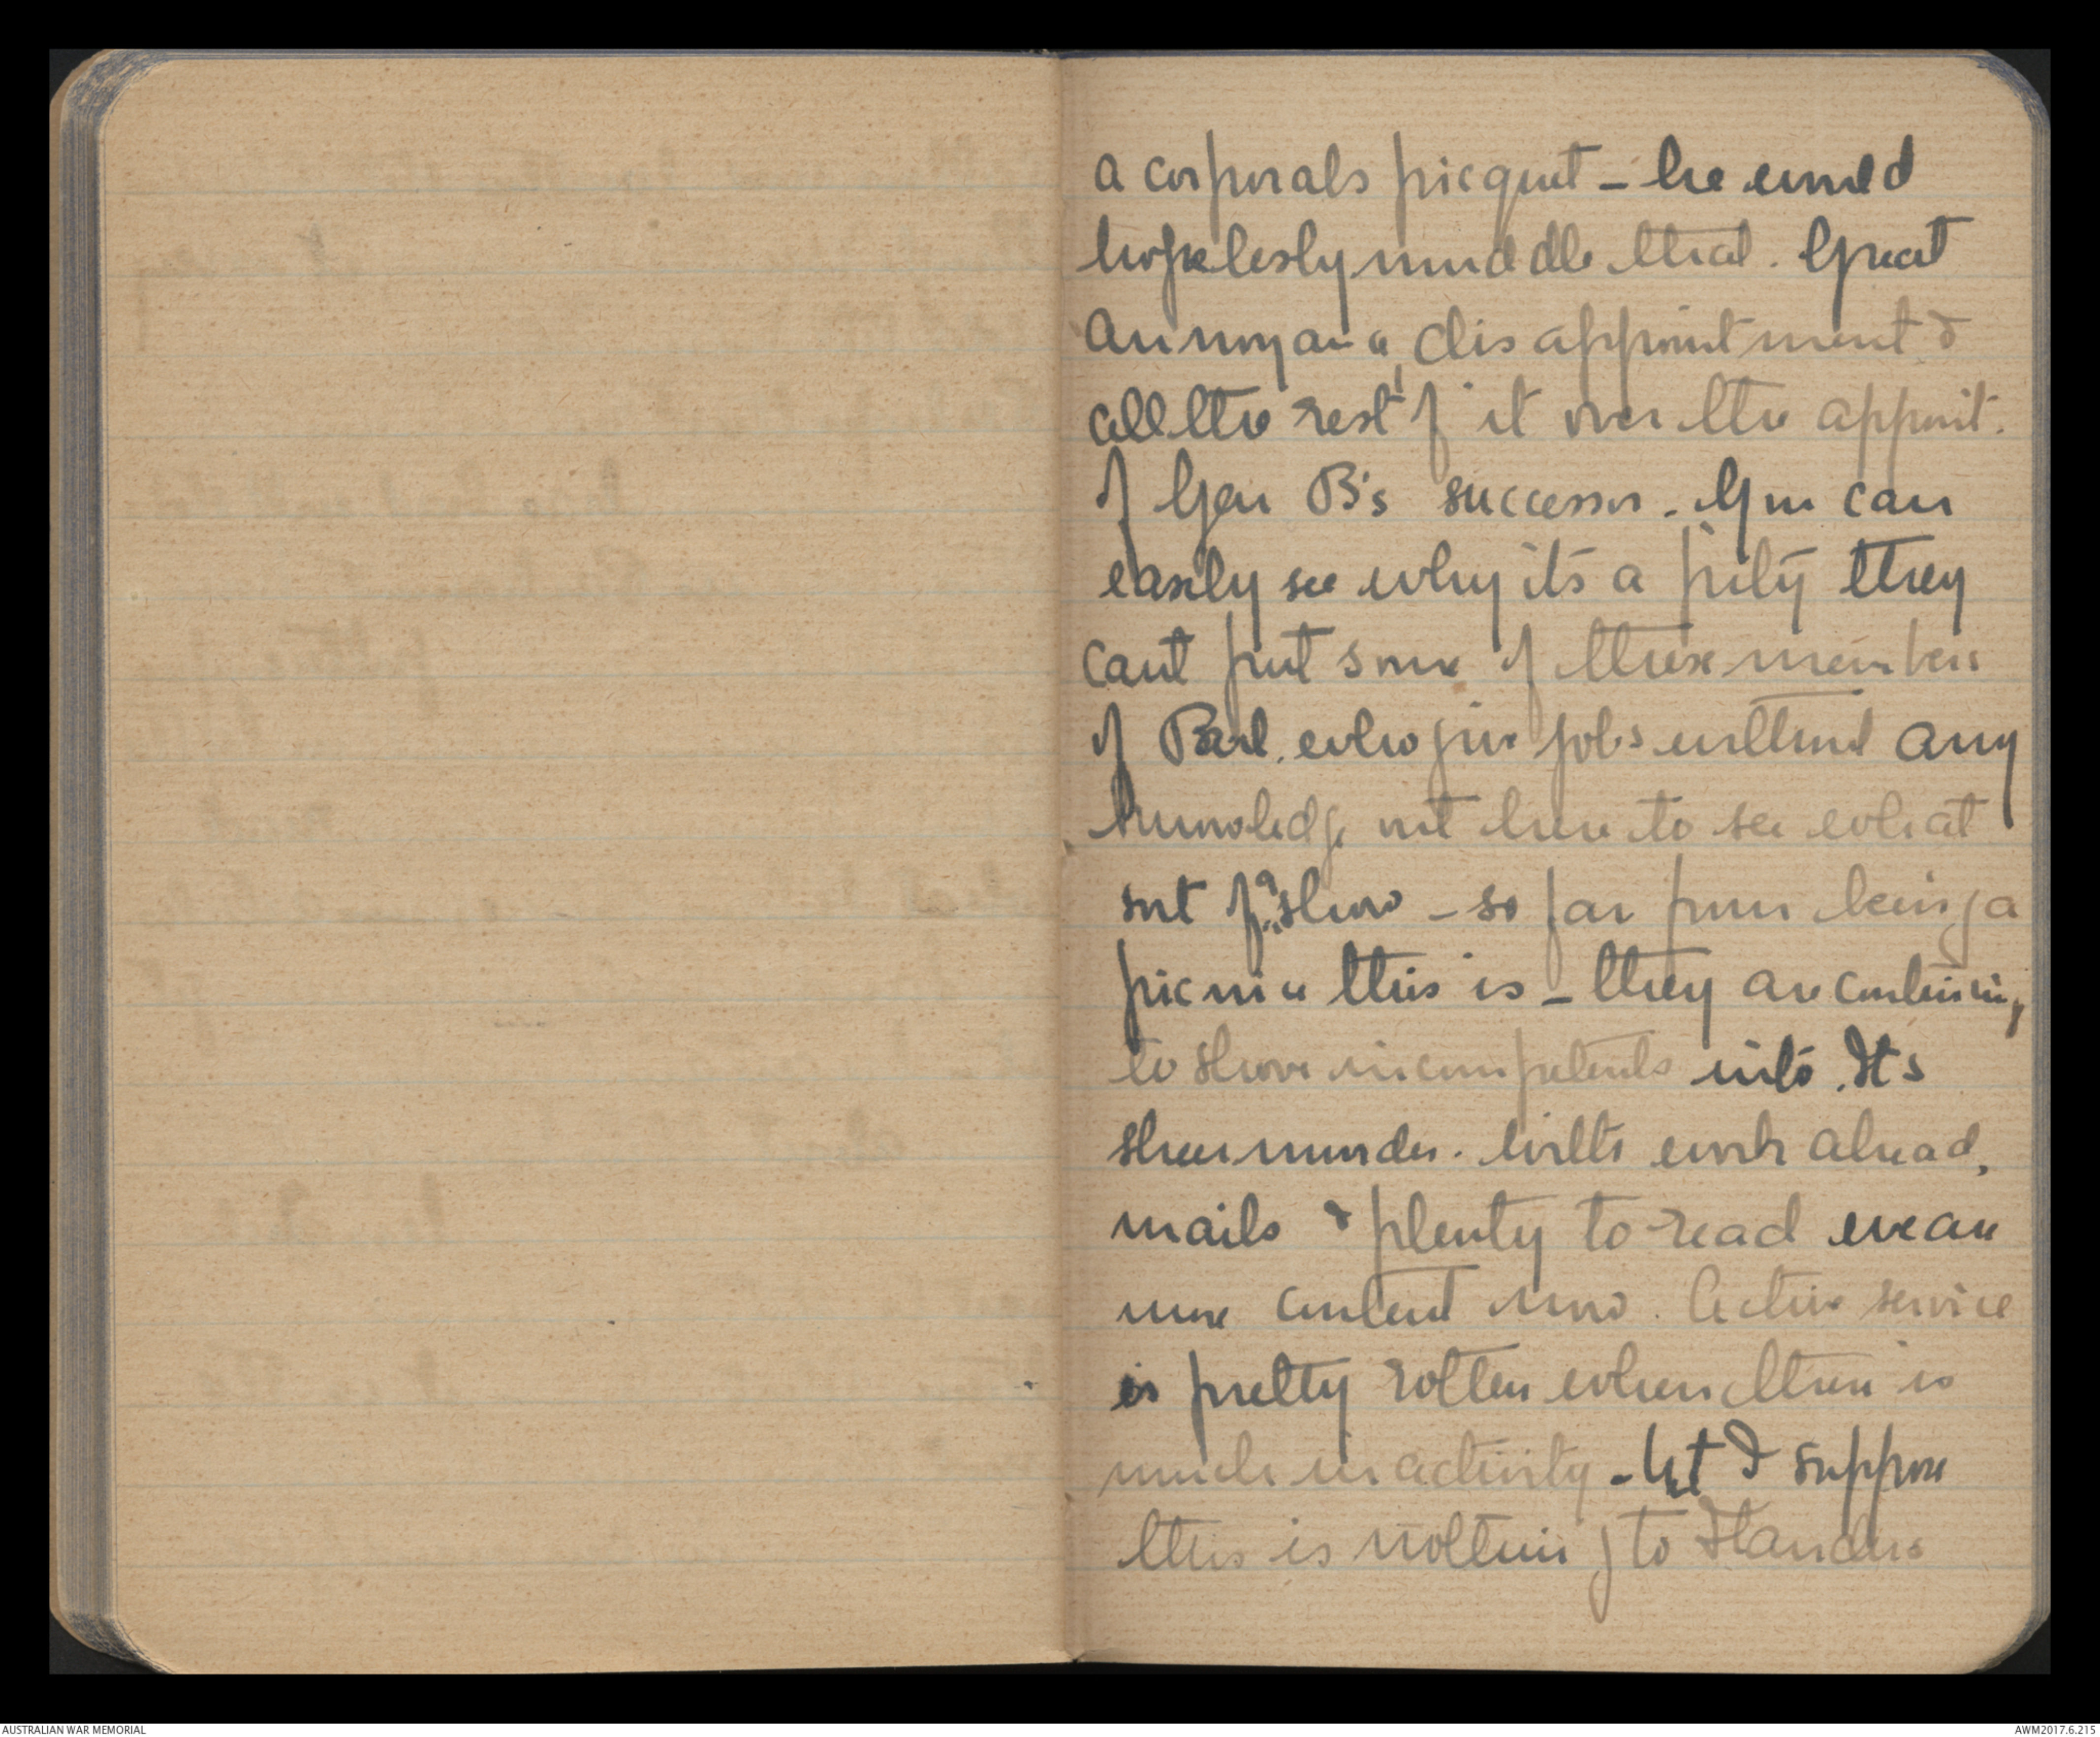 a corporals picquet - he would
hopelesly muddle that. Great
annoyance, disappointment &
all the rest of it over the appoint.
of Gen B's successor. You can
easily see why its a pity they
cant put some of these members
of Parl. who give jobs without any
knowledge not here to see what
sort of a show - so far from being a
picnic this is - they are continuing
to shove incompetents into. It's
sheer murder. With work ahead,
mails & plenty to read we are
more content now. Active service
is pretty rotten when there is
much inactivity - but I suppose
this is nothing to Flanders
AUSTRALIAN WAR MEMORIAL
AWM2017.6.215